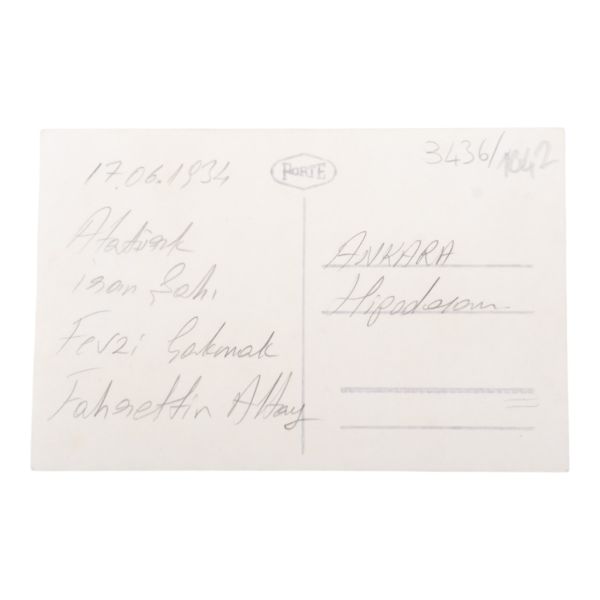 17.06.1934
Atatürk
iran Şahı
Fevzi Çakmak
Fahrettin Altay
PORTE
3436/1042
ANKARA
Hipodrom